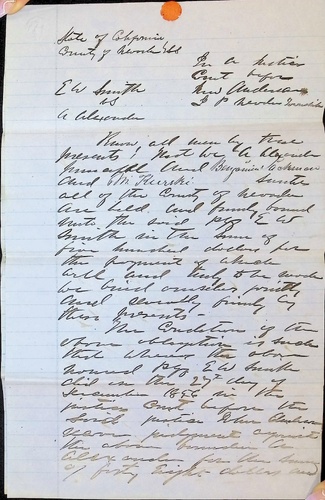 State of California
County of Nevada } ss
In a Justice
Court before
Wm Anderson
J P Nevada Township
E W Smith
vs
A Alexander
Know all men by these
presents that we A Alexander
principal And Benjamin
And M sureties
all of the County of Nevada
are held and firmly bound
unto the said Plff E W
Smith in the sum of
five hundred dollars for
the payment of which
well and truly to be made
we bind ourselves jointly
and severally firmly by
these presents -
The Condition of the
above obligation is such
that whereas the above
named Plff E W Smith
did on the 27th day of
December 1856 in the
Justices Court before the
said Justice Wm Anderson
recover judgment against
the above bounden A
Alexander for the sum
of forty eight dollars and